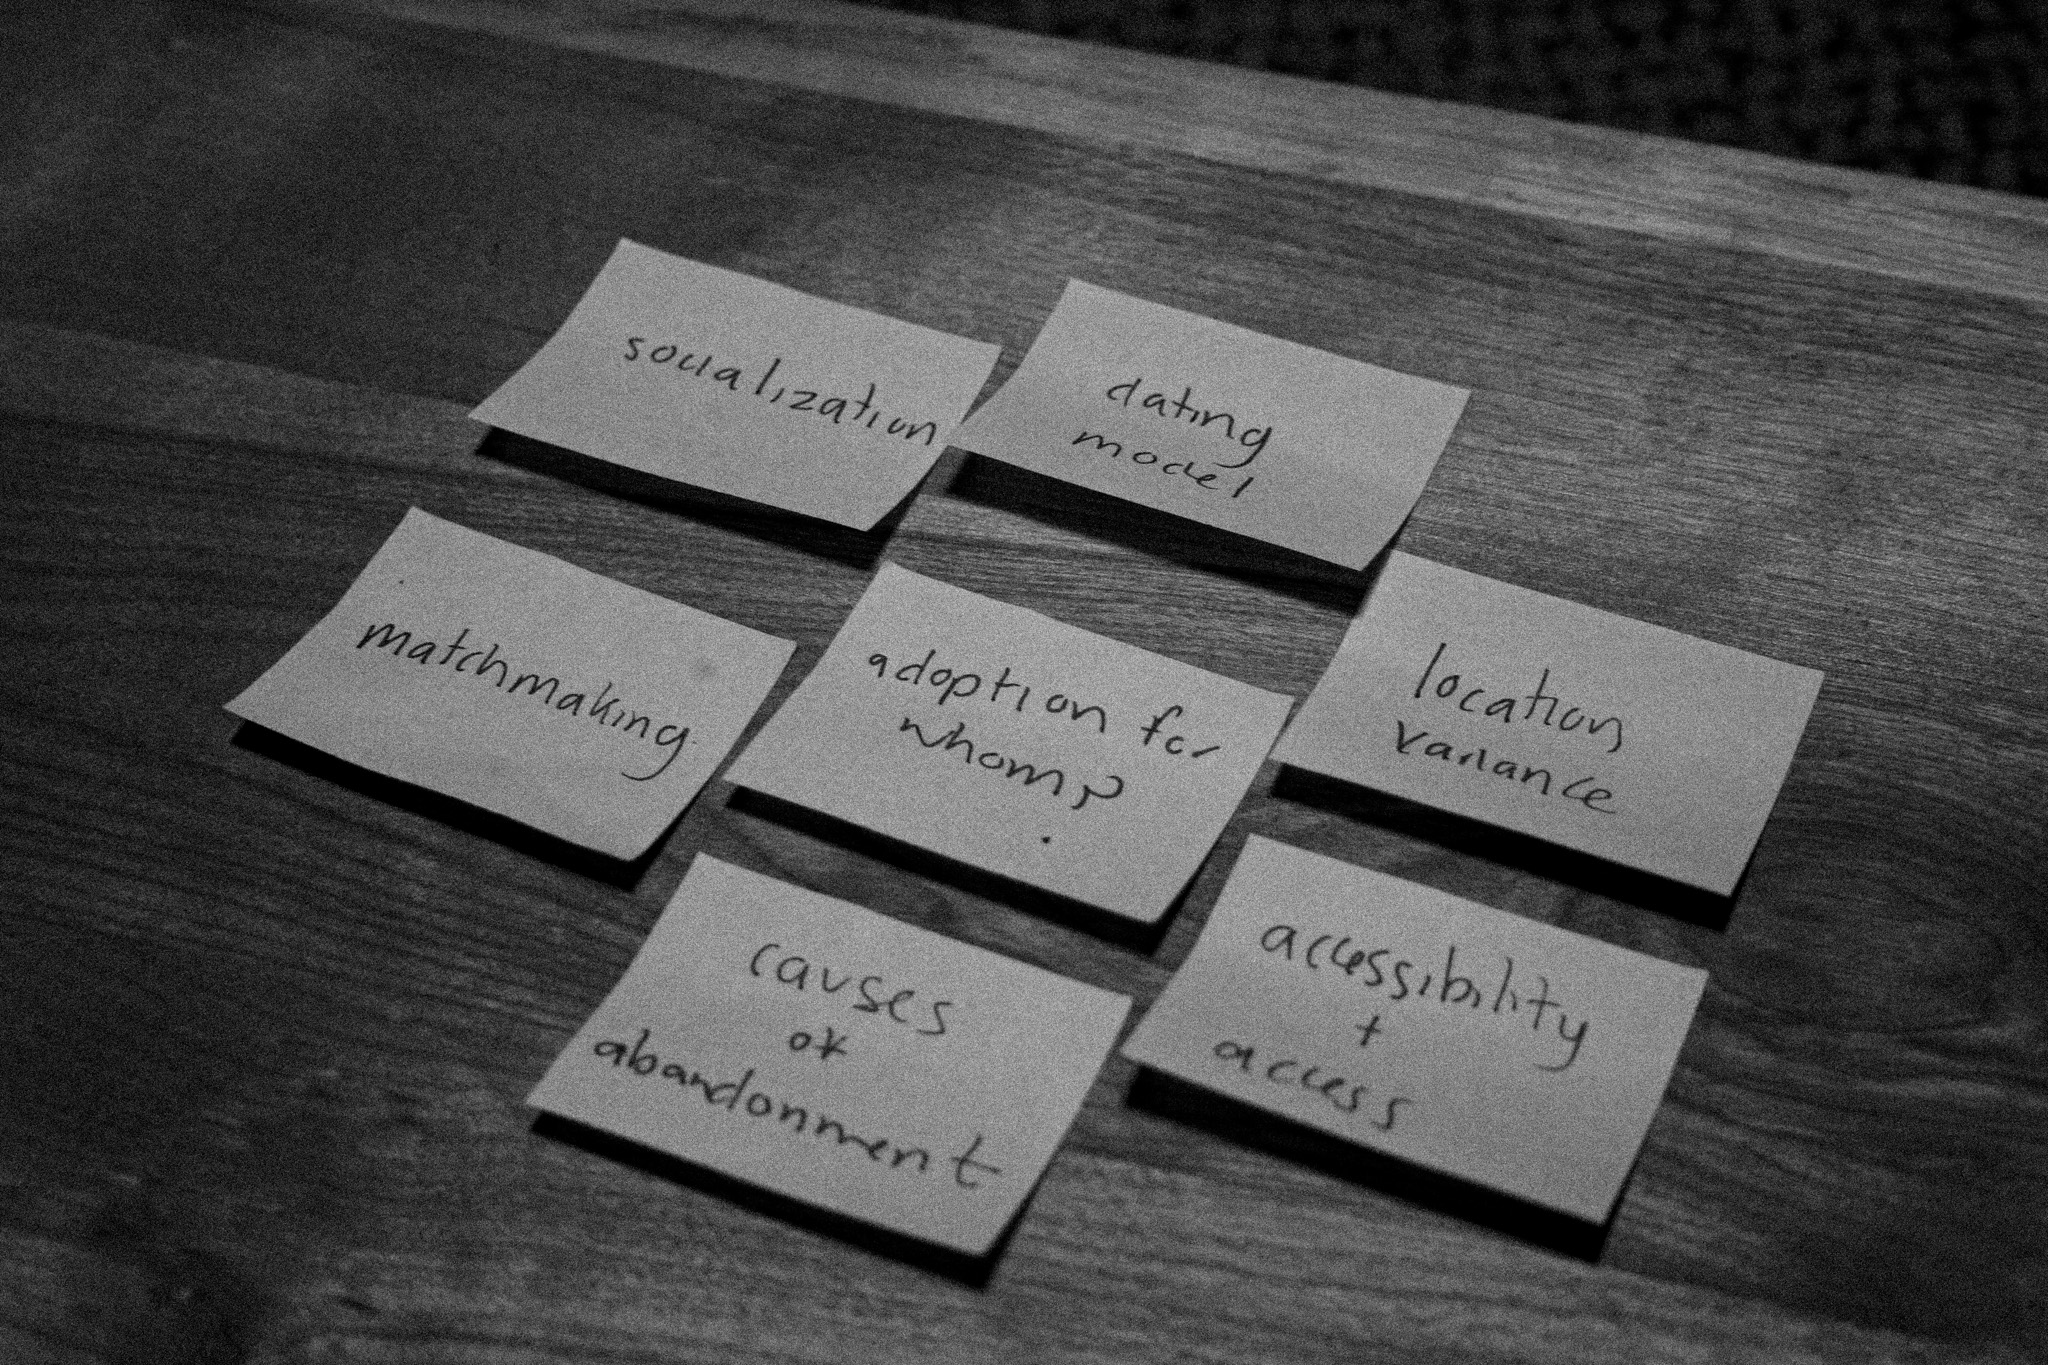 socialization
dating
model
matchmaking
adoption for
whom?
location
variance
causes
of
abandonment
accessibility
+
access